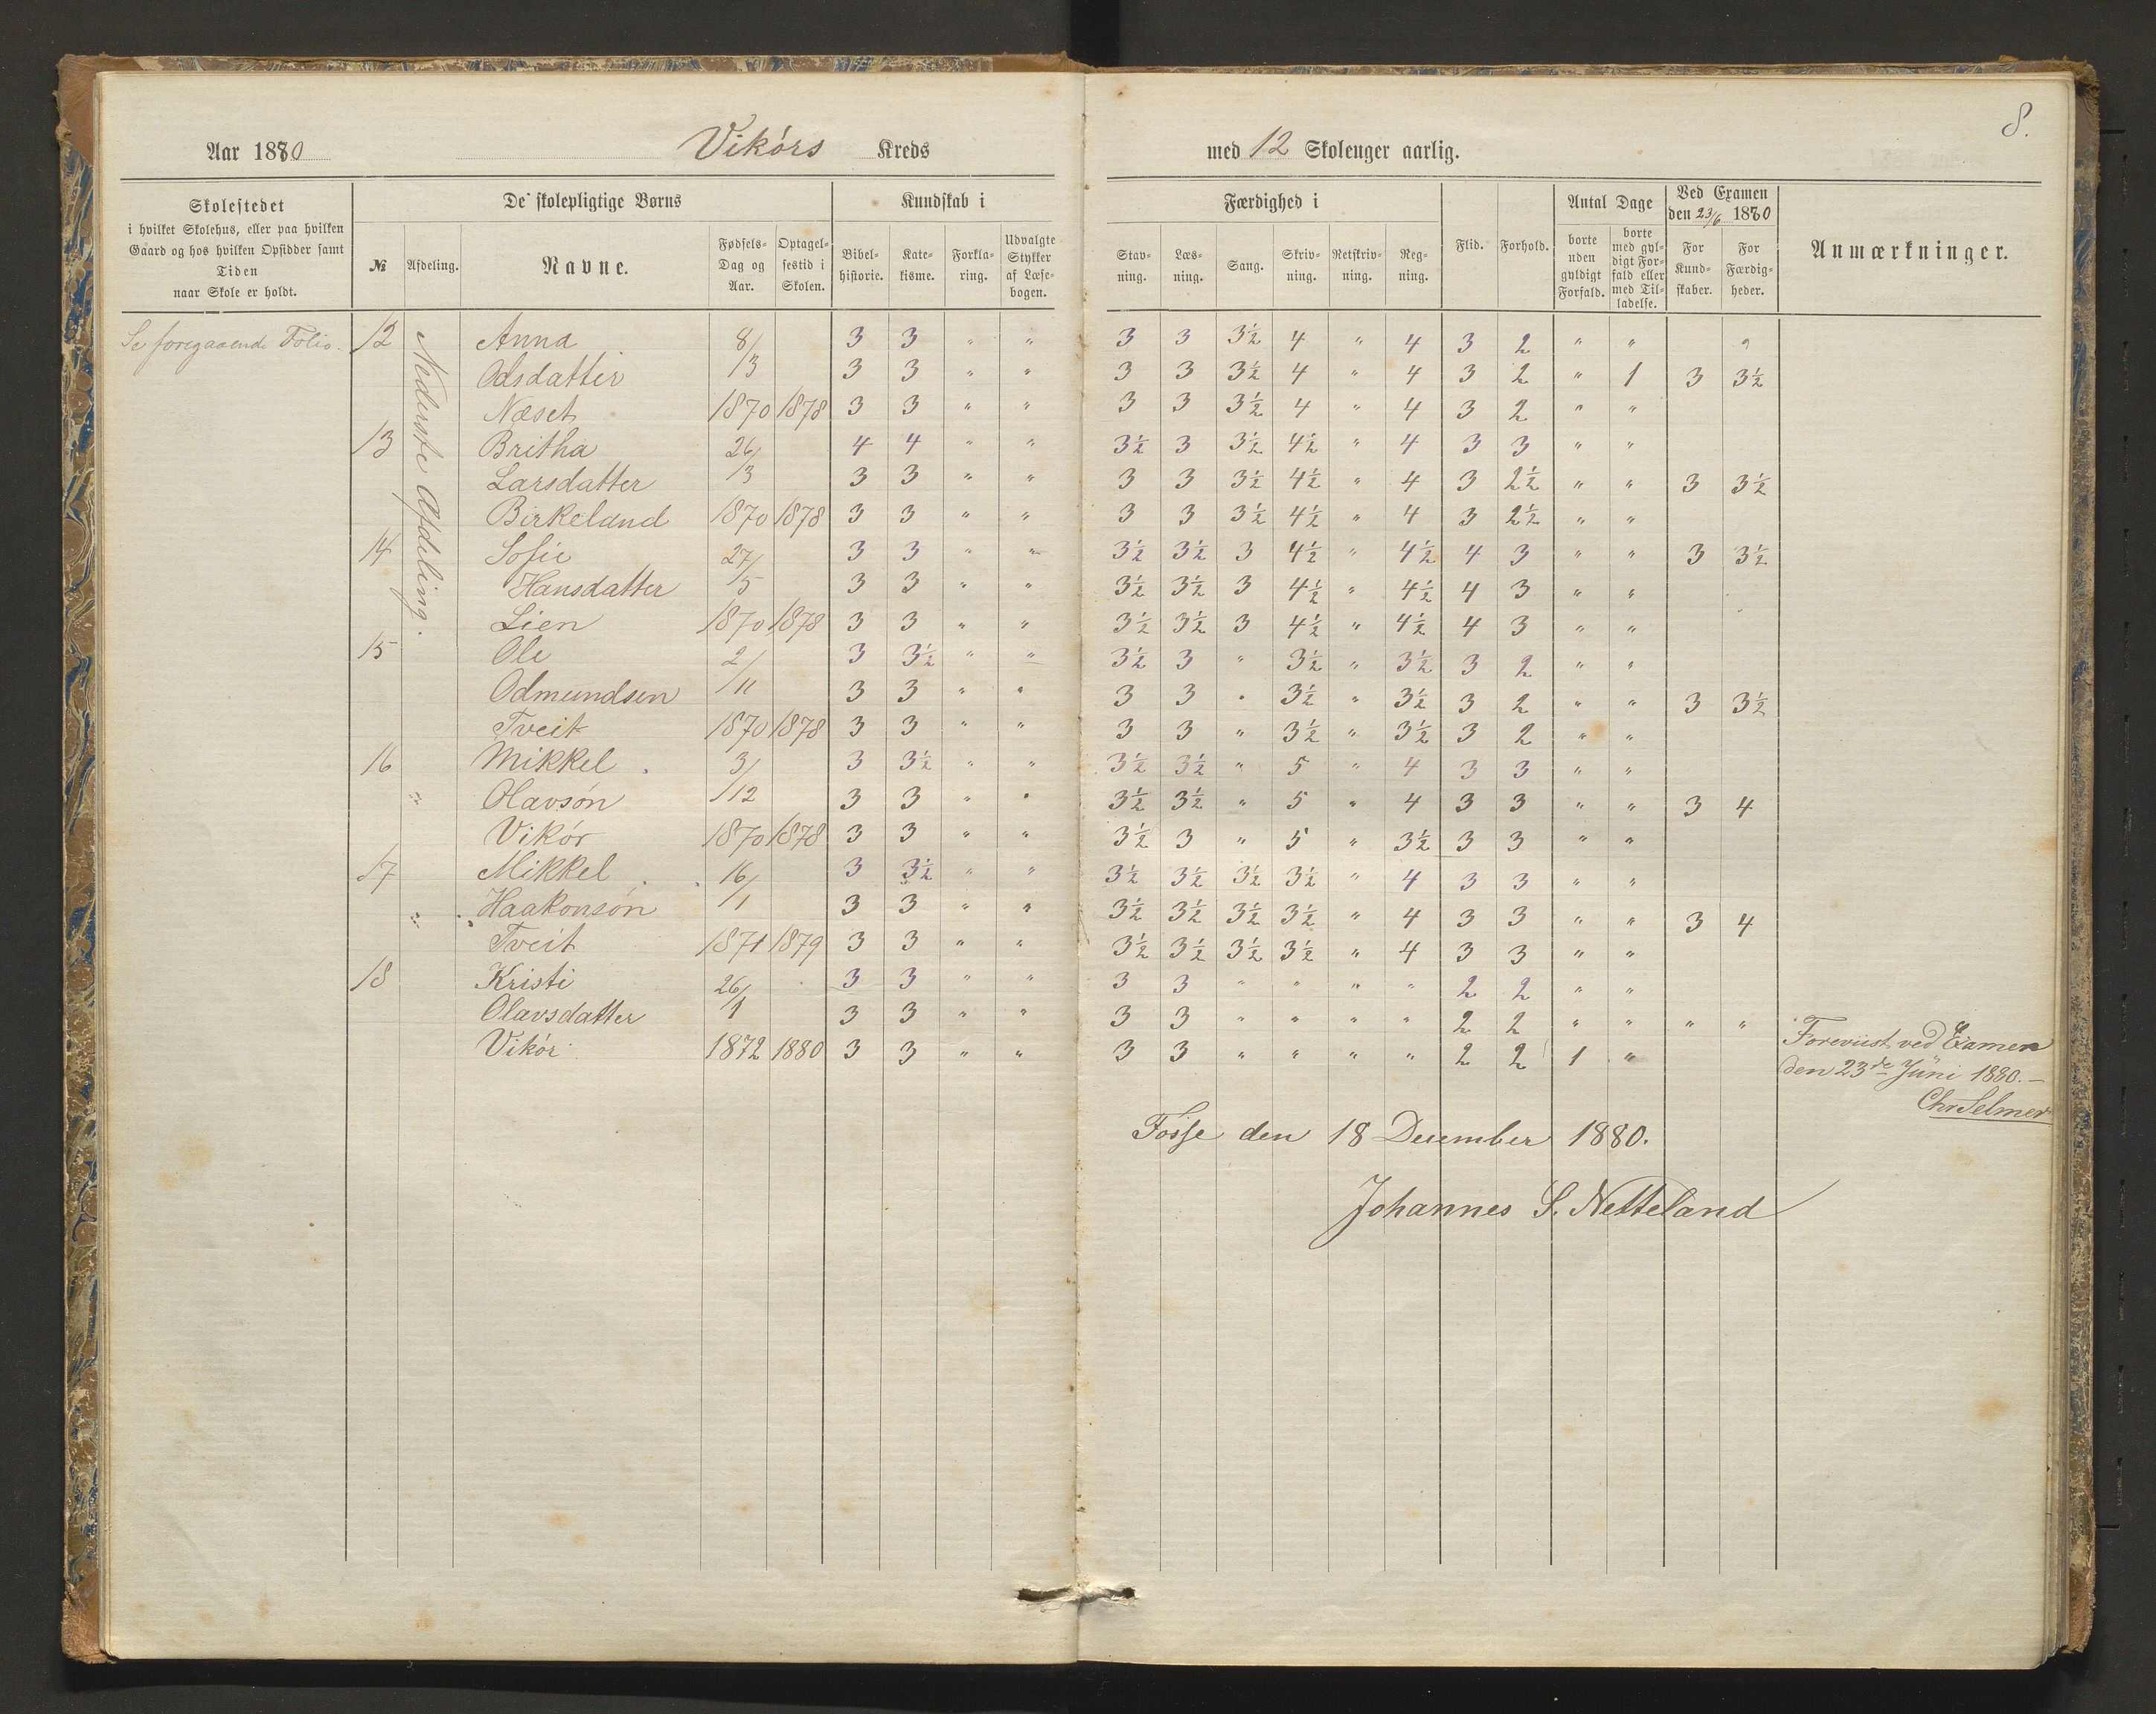 8.
Aar 1880 Vikörs Kreds med 12 Skoleuger aarlig.
Skolestedet
i hvilket Skolehus, eller paa hvilken
Gaard og hos hvilken Opsidder samt
Tiden
naar Skole er holdt.
De skolepligtige Børns
№ Afdeling. Navne. Fødsels-Dag og Aar. Optagel-sestid i Skolen.
Kundskab i
Bibel-historie. Kate-kisme. Forkla-ring. Udvalgte Stykker af Læse-bogen.
Færdighed i
Stav-ning. Læs-ning. Sang. Skriv-ning. Retskriv-ning. Reg-ning.
Flid. Forhold.
Antal Dage
borte uden gyldigt Forfald. borte med gyl-digt For-fald eller med Til-ladelse.
Ved Examen
den 23/6 1880
For Kund-skaber. For Færdig-heder.
Anmærkninger.
Se foregaaende Folio.
Nederste Afdeling.
12 Anna 8/ 3 3 " " 3 3 3½ 4 " 4 3 2 " "
Odsdatter /3 3 3 " " 3 3 3½ 4 " 4 3 2 " 1 3 3½
Næset 1870 1878 3 3 " " 3 3 3½ 4 " 4 3 2 " "
13 Britha 26/ 4 4 " " 3½ 3 3½ 4½ " 4 3 3 " "
Larsdatter /3 3 3 " " 3 3 3½ 4½ " 4 3 2½ " " 3 3½
Birkeland 1870 1878 3 3 " " 3 3 3½ 4½ " 4 3 2½ " "
14 Sofie 27/ 3 3 " " 3½ 3½ 3 4½ " 4½ 4 3 " " 3 3½
Hansdatter /5 3 3 " " 3½ 3½ 3 4½ " 4½ 4 3 " "
Lien 1870 1878 3 3 " " 3½ 3½ 3 4½ " 4½ 4 3 " "
15 Ole 2/ 3 3½ " " 3½ 3 " 3½ " 3½ 3 2 " "
Odmundsen /11 3 3 " " 3 3 " 3½ " 3½ 3 2 " " 3 3½
Tveit 1870 1878 3 3 " " 3 3 " 3½ " 3½ 3 2 " "
16 Mikkel 3/ 3 3½ " " 3½ 3½ " 5 " 4 3 3 " "
" Olavsøn /12 3 3 " " 3½ 3½ " 5 " 4 3 3 " " 3 4
Vikór 1870 1878 3 3 " " 3½ 3 " 5 " 3½ 3 3 " "
17 Mikkel 16/ 3 3½ " " 3½ 3½ 3½ 3½ " 4 3 3 " "
" Haakonsøn /1 3 3 " " 3½ 3½ 3½ 3½ " 4 3 3 " " 3 4
Tveit 1871 1879 3 3 " " 3½ 3½ 3½ 3½ " 4 3 3 " "
18 Kristi 26/ 3 3 " " 3 3 " " " " 2 2 " "
Olavsdatter /1 3 3 " " 3 3 " " " " 2 2 " " " "
Vikór 1872 1880 3 3 " " 3 3 " " " " 2 2 1 "
Foreviist ved Examen
den 23de Juni 1880.—
Chr Selmer
Fosse den 18 December 1880.
Johannes S. Netteland